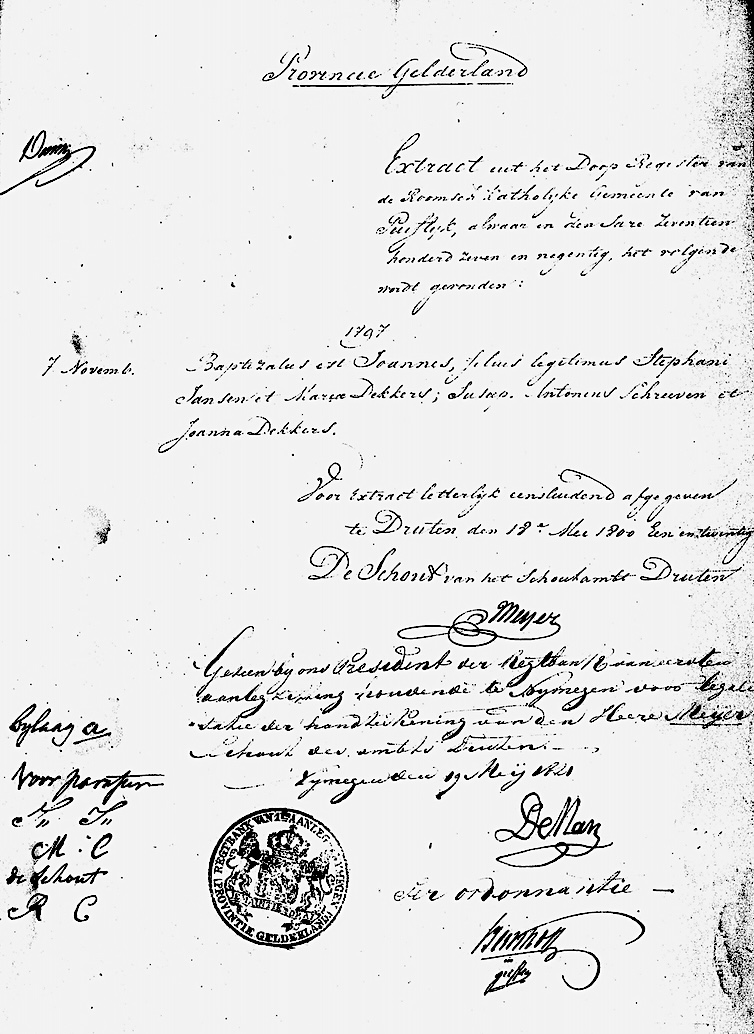 Provincie Gelderland
Extract uit het Doop Register van
de Roomsch Catholyke Gemeente van
Puiflyk, alwaar in den Jare Zeventien
honderd zeven en negentig, het volgende
wordt gevonden:
1797
7 Novemb.
Baptizatus est Joannes, filius legitimus Stephani
Jansen et Maria Dekkers; Susep. Antonius Schreuven et
Joanna Dekkers.
Voor Extract letterlyk eensluidend afgegeven
te Druten den 18e Mei 1800 Een en twintig
De Schout van het Schoutambt Druten
Meyer
Gezien by ons President der Regtbank van eersten
aanleg zitting houdende te Nymegen voor legali-
satie der handteekening van den Heere Meyer
Schout des ambts Druten.
Nymegen den 19 Meij 1821
bylaag a
Voor
J. J.
M : C
de Schout
R C
De Man
Ter ordonnantie
REGTBANK VAN 1e AANLEG NYMEGEN
PROVINTIE GELDERLAND
JE MAINTIENDRAI
griffier